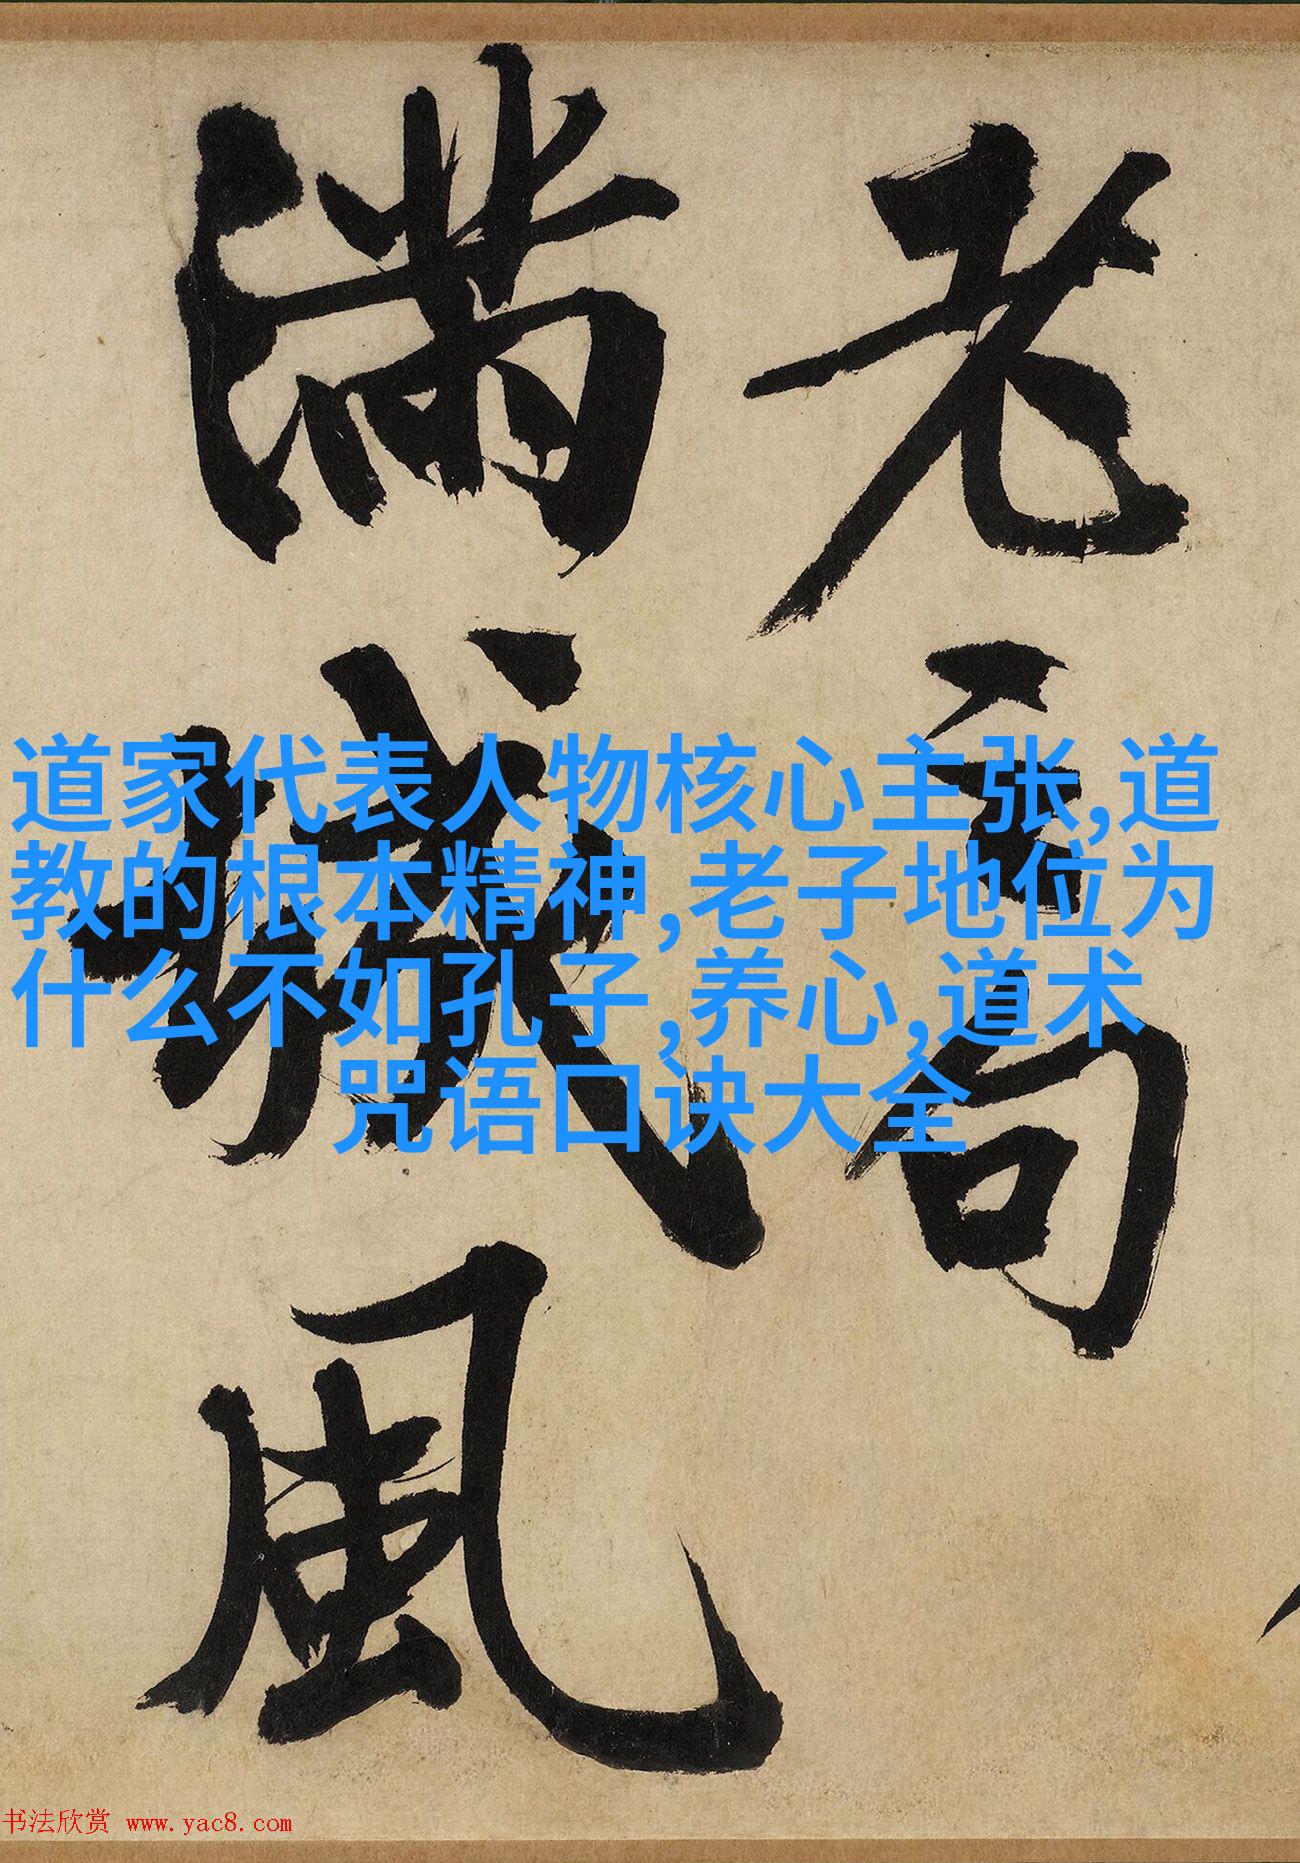 老高
滿城風
道家代表人物核心主张,道
教的根本精神,老子地位为
什么不如孔子,养心,道术
咒语口诀大全
书法欣赏 www.yac8.com